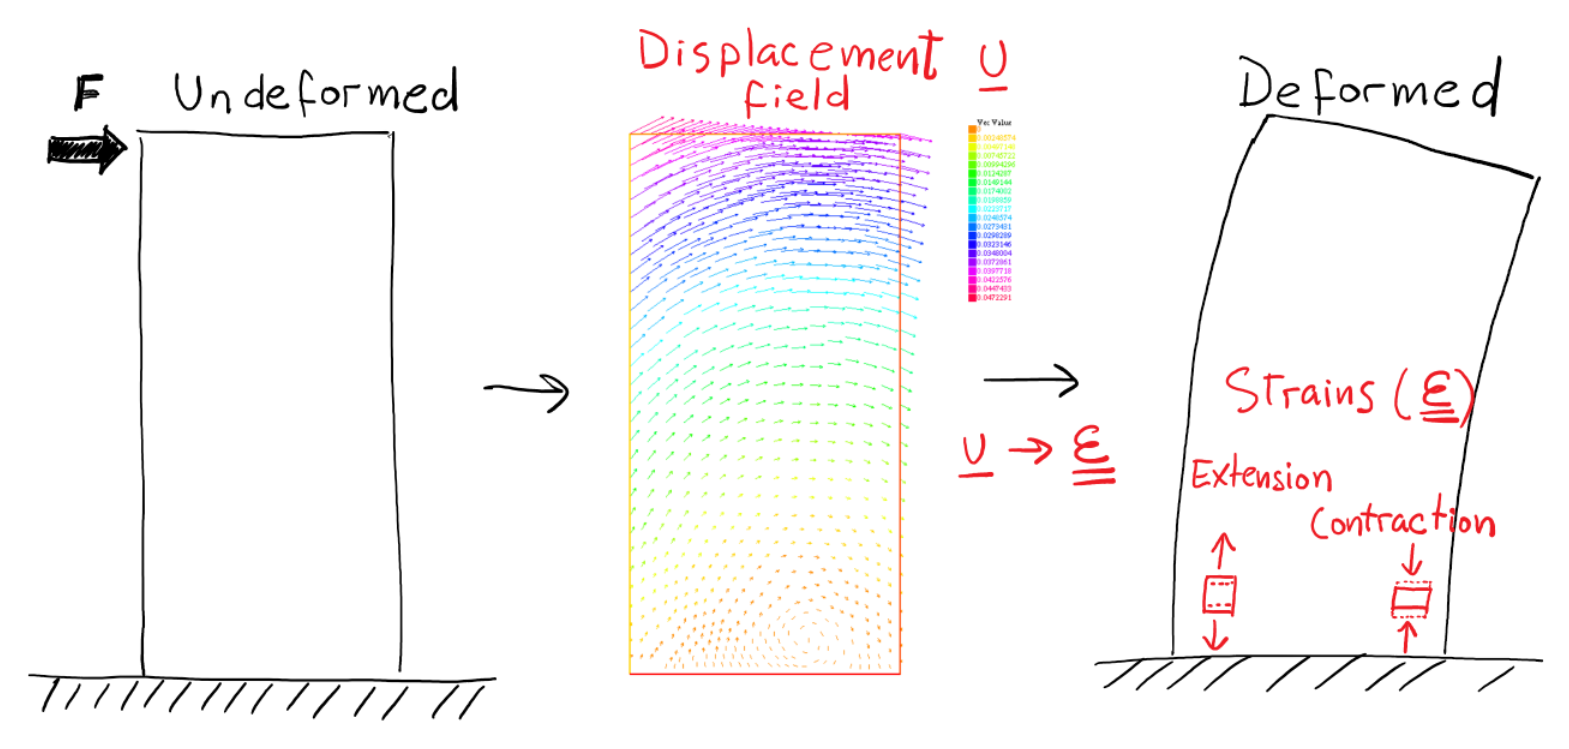 F Undeformed
Displacement u
field
Deformed
Vec Value
0
0.00248574
0.00745722
0.00994296
0.0124287
0.0149144
0.0174002
0.0198859
0.0223717
0.0248574
0.0273431
0.0298289
0.0323146
0.0348004
0.0372861
0.0397718
0.0422576
0.0447433
0.0472291
u → ε
Strains (ε)
Extension
Contraction